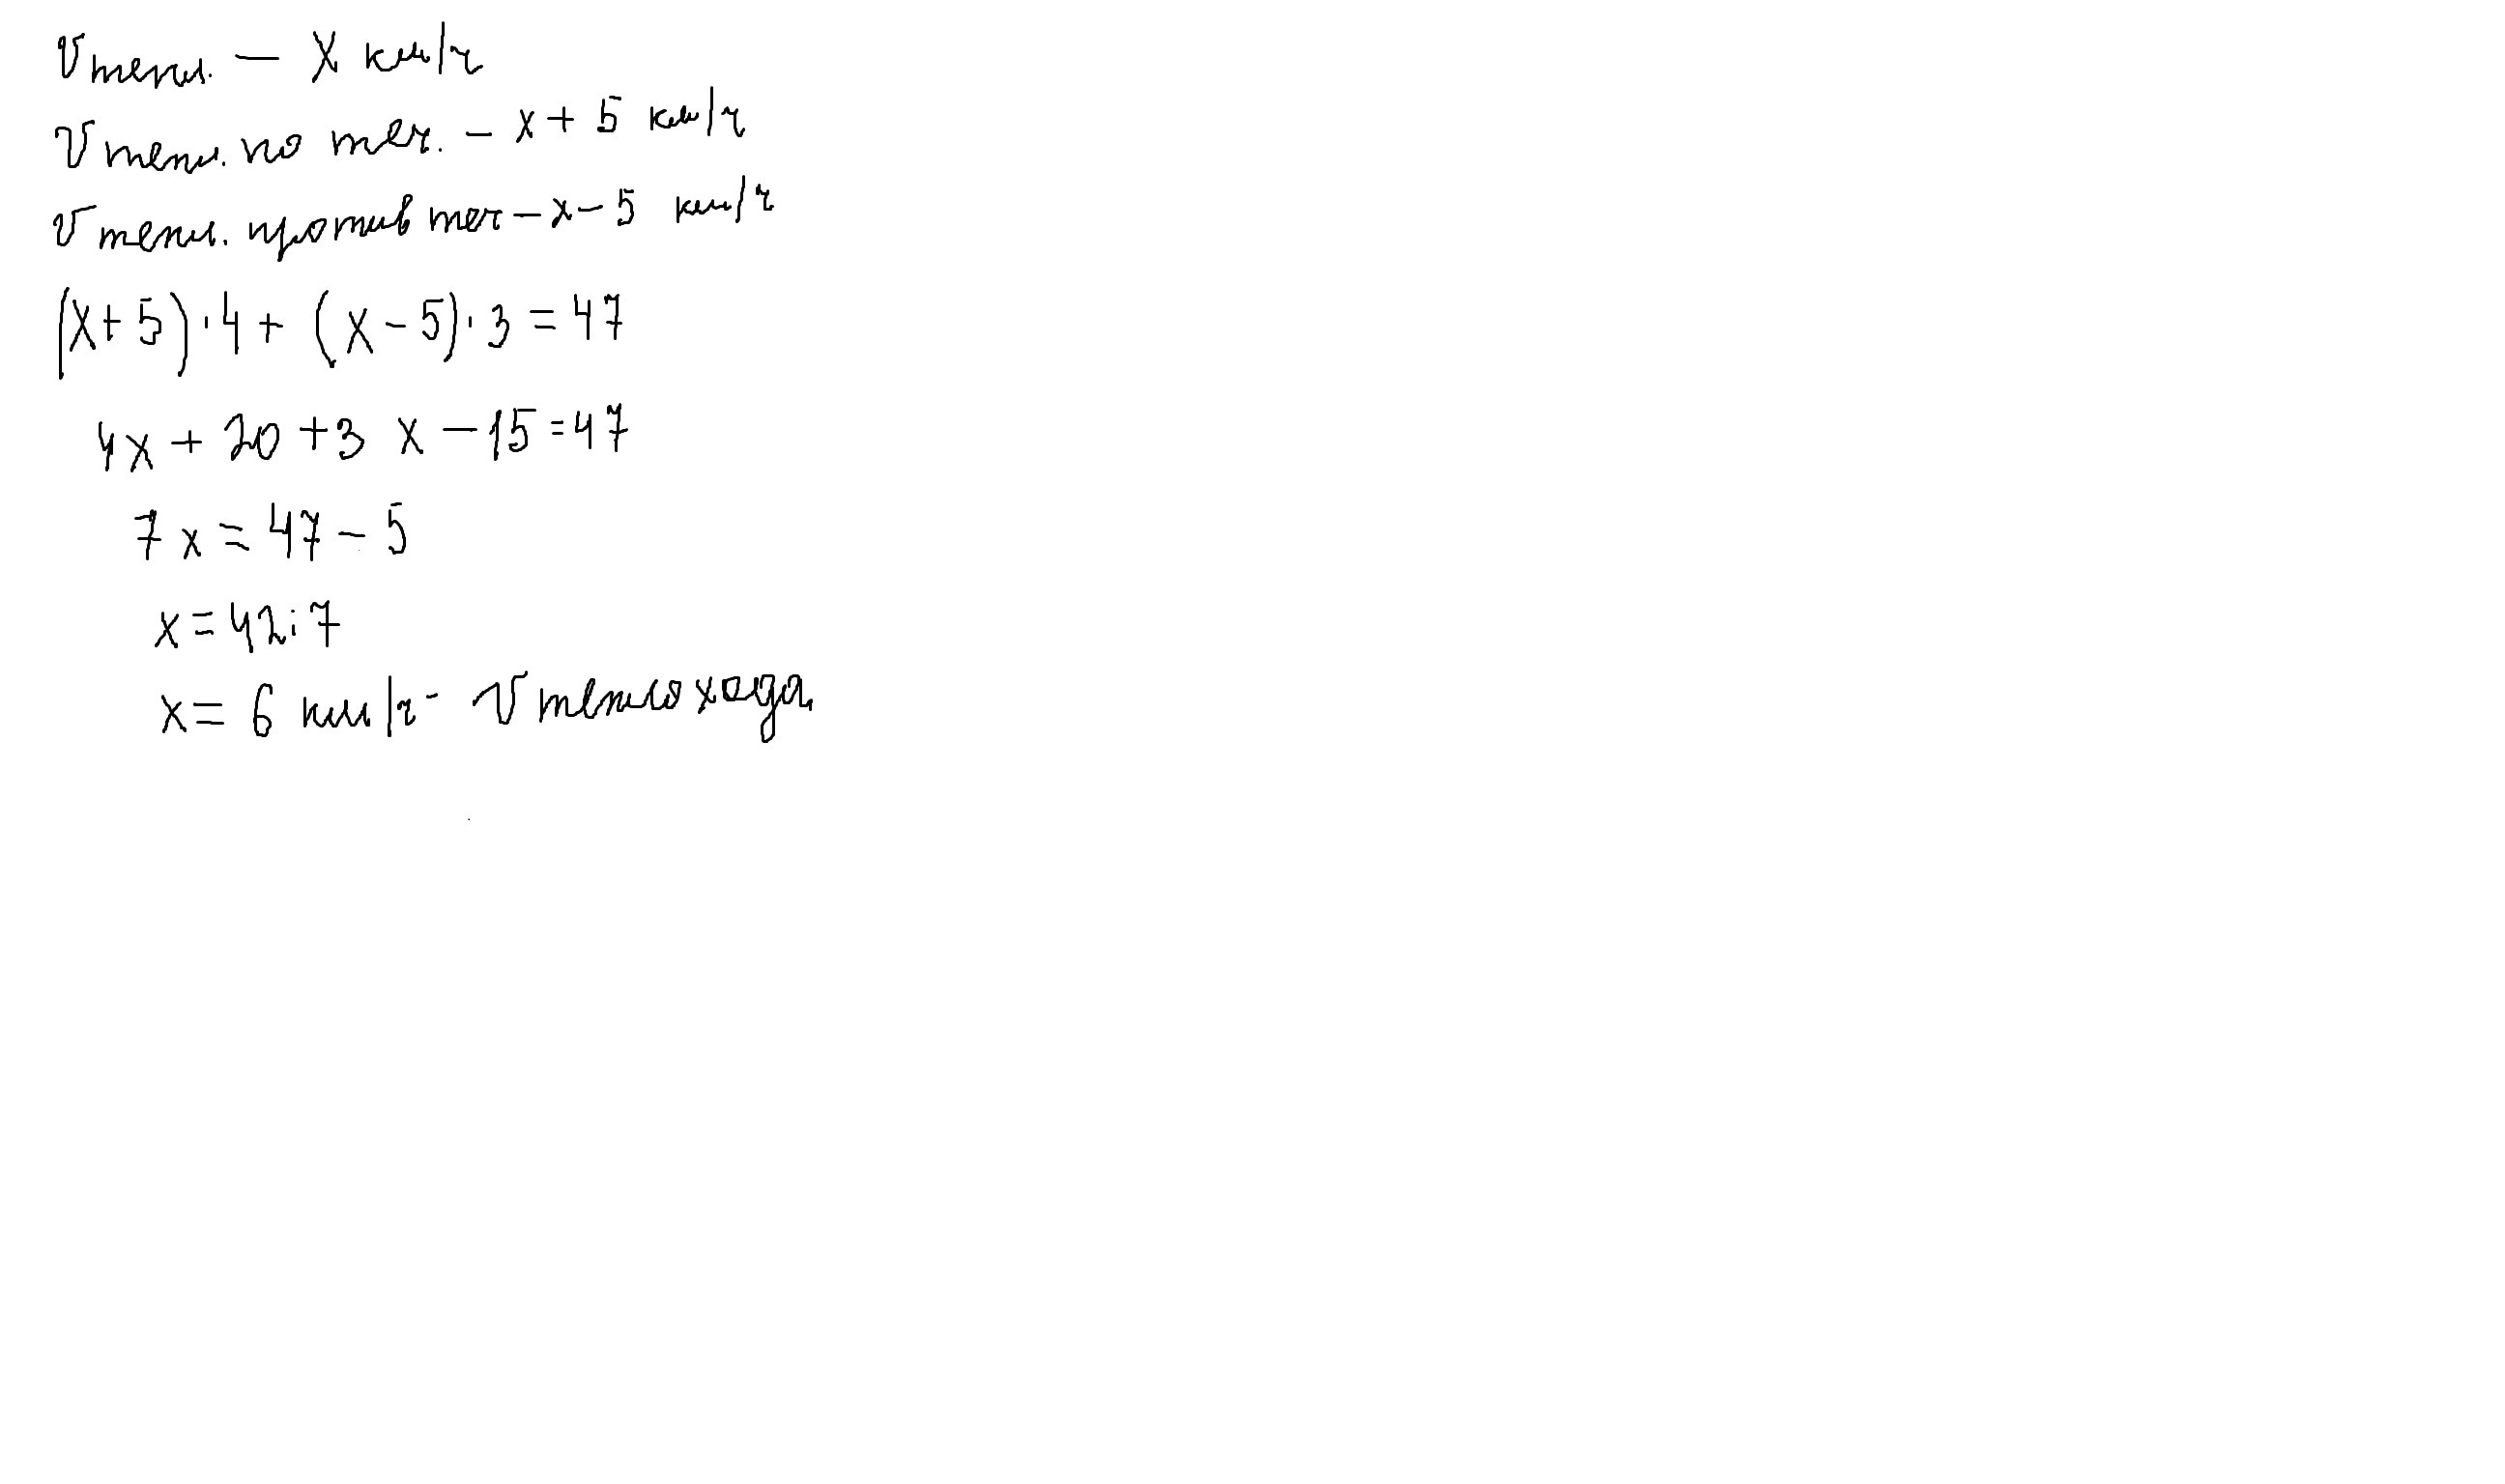 V тепл. – X км/ч
V тепл. по теч. – x + 5 км/ч
V тепл. против теч – x – 5 км/ч
(x+5)·4+(x-5)·3=47
4x+20+3x-15=47
7x=47-5
x=42:7
x=6 км/ч – V теплохода